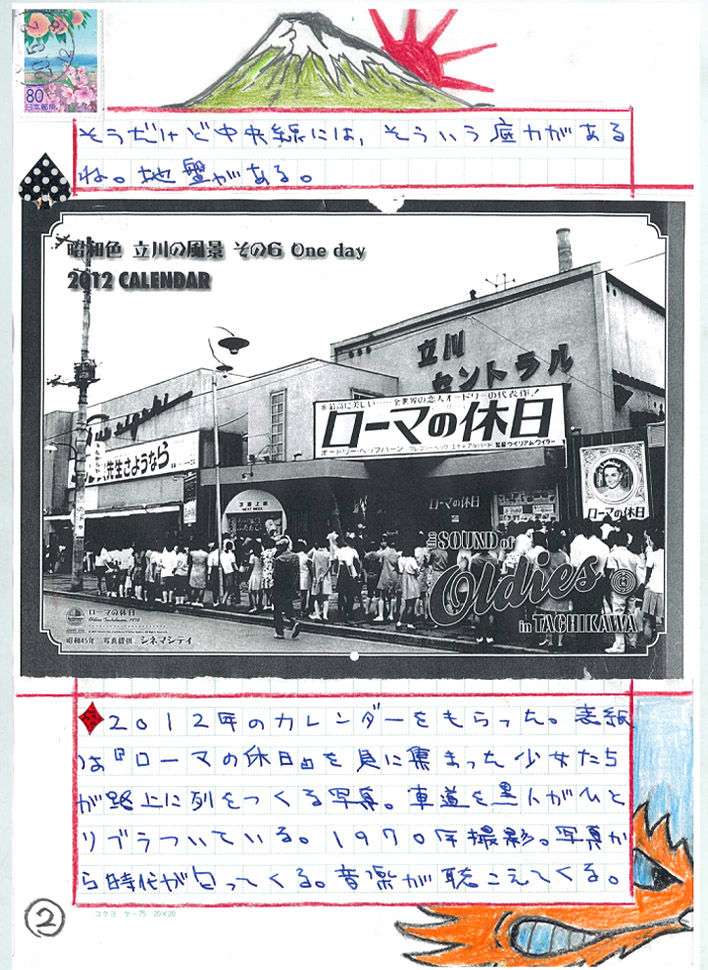 80
日本郵便
そうだけど中央線には、そういう底力がある
ね。地盤がある。
昭和色 立川の風景 その6 One day
2012 CALENDAR
立川
セントラル
※最高に美しい……全世界の恋人オードリーの代表作!
ローマの休日
オードリー・ヘップバーン グレゴリー・ペック エディ・アルバート 監督ウイリアム・ワイラー
先生さようなら
次週上映
NEXT WEEK
ローマの休日
ローマの休日
the SOUND of
Oldies
in TACHIKAWA
ローマの休日
昭和45年 写真提供 シネマシティ
2012年のカレンダーをもらった。表紙
は『ローマの休日』を見に集まった少女たち
が路上に列をつくる写真。車道を黒人がひと
りブラついている。1970年撮影。写真か
ら時代が匂ってくる。音楽が聴こえてくる。
②
コクヨ ケー75 20×20